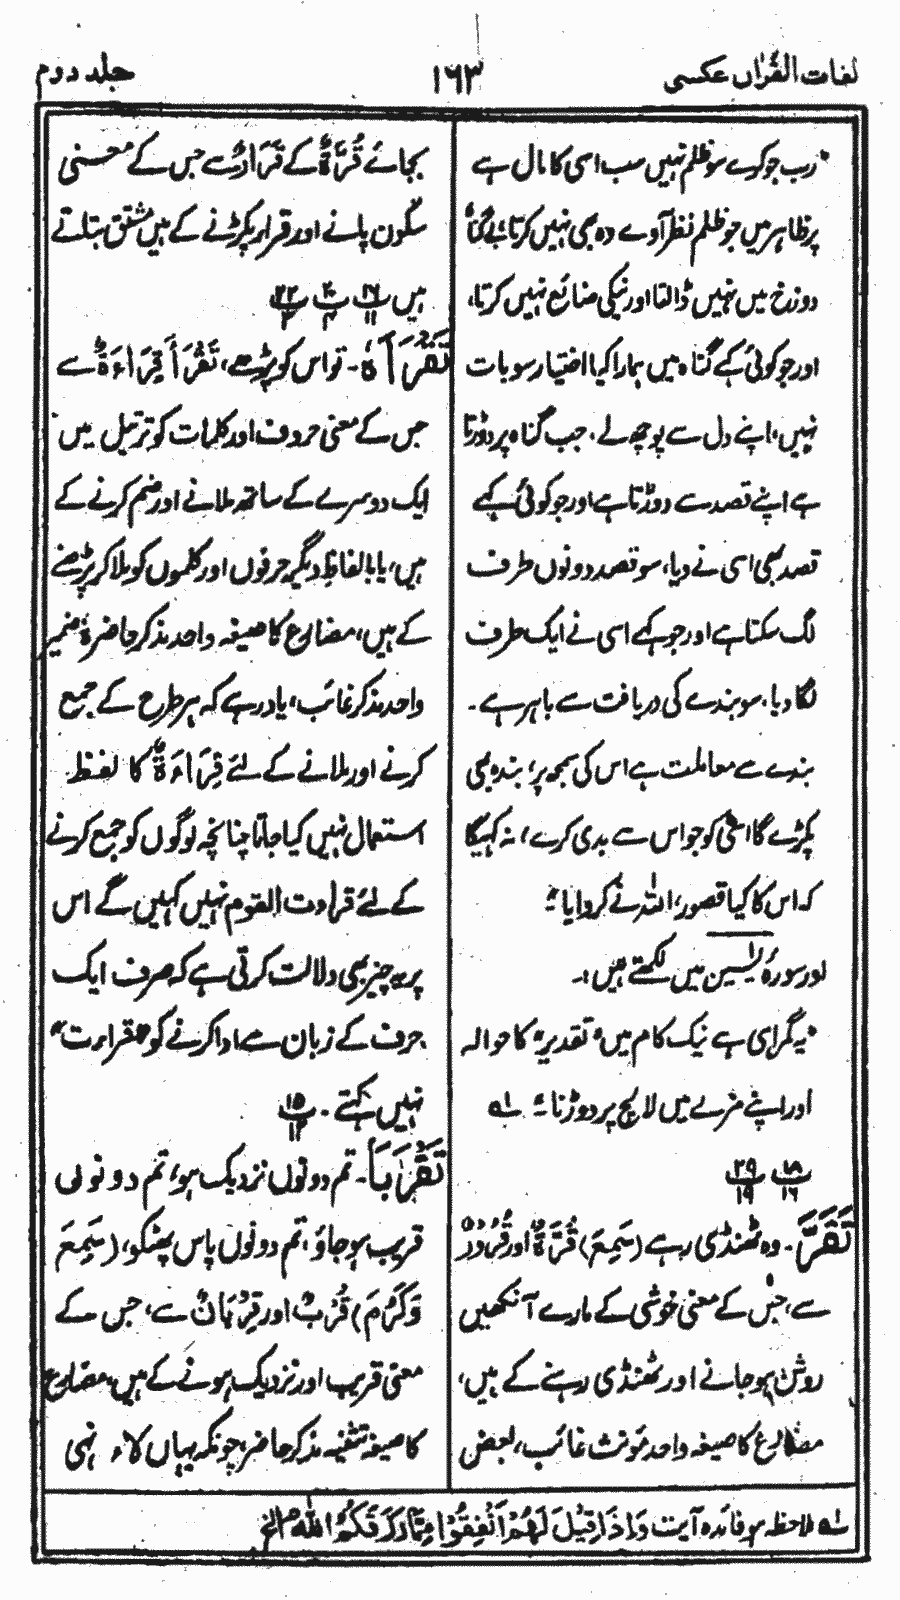 لغات القرآن عکسی ۱۶۳ جلد دوم
"رب جو کرے سو ظلم نہیں سب اسی کا مال ہے
پر ظاہر میں جو ظلم نظر آوے وہ بھی نہیں کرتا بے گناہ
دوزخ میں نہیں ڈالتا اور نیکی ضائع نہیں کرتا،
اور جو کوئی کہے گناہ میں ہمارا کیا اختیار سو بات
نہیں، اپنے دل سے پوچھ لے، جب گناہ پر دوڑتا
ہے اپنے قصد سے دوڑتا ہے اور جو کوئی کہے
قصد بھی اسی نے دیا، سو قصد دونوں طرف
لگ سکتا ہے اور جو کہے اسی نے ایک طرف
لگا دیا، سو بندے کی دریافت سے باہر ہے۔
بندے سے معاملت ہے اس کی سمجھ پر، بندہ بھی
پکڑے گا اسی کو جو اس سے بدی کرے، نہ کہیگا
کہ اس کا کیا قصور، اللہ نے کروایا"۔
اور سورہ یٰسین میں لکھتے ہیں :۔
"یہ گمراہی ہے نیک کام میں "تقدیر" کا حوالہ
اور اپنے مزے میں لالچ پر دوڑنا"۔ لہ
۱۸ ۲۹
۱۶ ۱۹
تَقَرَّ۔ وہ ٹھنڈی رہے (سَمِعَ) قُرَّةٌ اور قُرُوْرٌ
سے، جس کے معنی خوشی کے مارے آنکھیں
روشن ہو جانے اور ٹھنڈی رہنے کے ہیں،
مضارع کا صیغہ واحد مؤنث غائب، بعض
بجائے قُرَّةٌ کے قَرَارٌ سے جس کے معنی
سکون پانے اور قرار پکڑنے کے ہیں مشتق بتلاتے
ہیں ۱۶ ۲۰ ۲۲
۱۱ ۴ ۳
تَقْرَأَہٗ۔ تو اس کو پڑھے، تَقْرَأَ قِرَاءَةٌ سے
جس کے معنی حروف اور کلمات کو ترتیل میں
ایک دوسرے کے ساتھ ملانے اور ضم کرنے کے
ہیں، یا بالفاظِ دیگر حرفوں اور کلموں کو ملا کر پڑھنے
کے ہیں، مضارع کا صیغہ واحد مذکر حاضر ہٗ ضمیر
واحد مذکر غائب، یاد رہے کہ ہر طرح کے جمع
کرنے اور ملانے کے لئے قِرَاءَةٌ کا لفظ
استعمال نہیں کیا جاتا چنانچہ لوگوں کو جمع کرنے
کے لئے قراءت القوم نہیں کہیں گے اس
پر یہ چیز بھی دلالت کرتی ہے کہ صرف ایک
حرف کے زبان سے ادا کرنے کو "قراءت"
نہیں کہتے۔ ۱۵
۱۲
تَقْرَبَا۔ تم دونوں نزدیک ہو، تم دونوں
قریب ہو جاؤ، تم دونوں پاس پھٹکو، (سَمِعَ
وَکَرُمَ) قُرْبٌ اور قِرْبَانٌ سے، جس کے
معنی قریب اور نزدیک ہونے کے ہیں، مضارع
کا صیغہ تثنیہ مذکر حاضر، چونکہ یہاں لاء نہی
لہ ملاحظہ ہو فائدہ آیت وَاِذَا قِیْلَ لَهُمْ اَنْفِقُوْا مِمَّا رَزَقَكُمُ اللهُ الخ